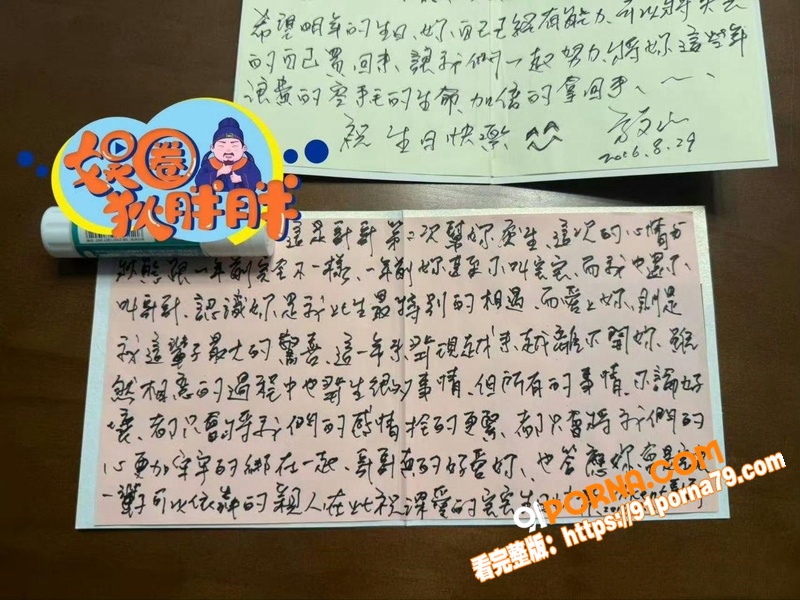 希望明年的生日、妳自己已經有能力可以將失去
的自己買回來、讓我們一起努力、將妳這些年
浪費的空乏的生命、加倍的拿回手、
祝 生日快樂
2016.8.29
娱圈
狄胖胖
這是哥哥第二次幫妳慶生、這次的心情與
狀態跟一年前完全不一樣、一年前妳甚至不叫宝宝、而我也還不
叫哥哥、認識妳是我此生最特別的相遇、而愛上妳、則是
我這輩子最大的驚喜、這一年多發現越來越離不開妳、雖
然相戀的過程中也發生很多事情、但所有的事情、不論好
壞、都只會將我們的感情拴的更緊、都只會將我們的
心更加牢牢的綁在一起、哥哥真的好愛妳、也答應妳
一輩子可以依靠的親人、在此祝課愛的宝宝生日
91PORNA.COM
看完整版：https://91porna79.com